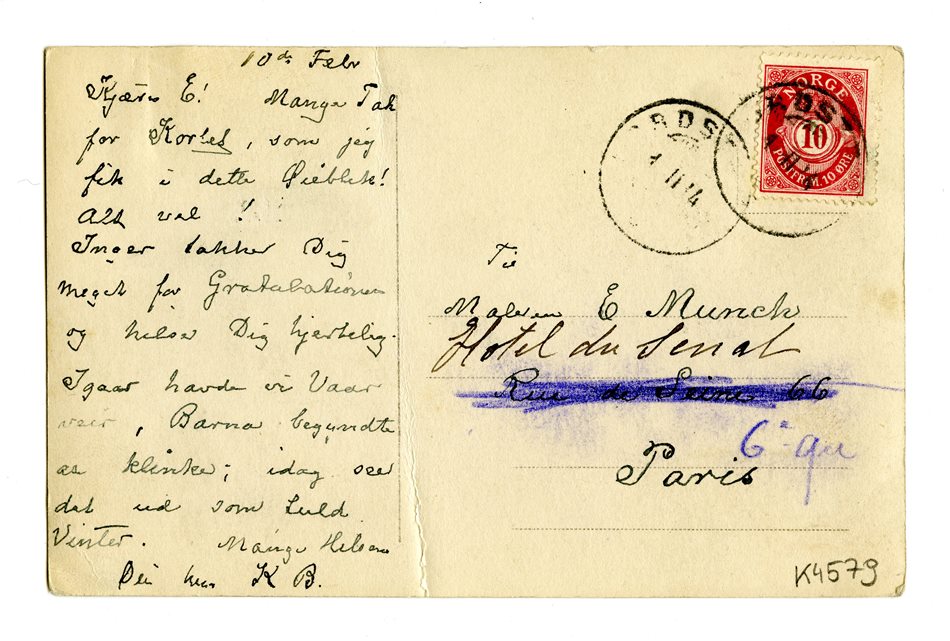 10de Febr
Kjære E! Mange Tak
for Kortet, som jeg
fik i dette Øieblik!
Alt vel!
Inger takker Dig
meget for Gratulationen
og hilser Dig hjertelig.
Igaar havde vi Vaar
veir, Barna begyndte
at klinke; idag seer
det ud som fuld
Vinter. Mange Hilsen
Din K B.
NORGE
10
POSTFRIM. 10 ØRE
11 14
Til
Maleren E Munch
Hotel du Senat
Rue de Seine 66
6e qu
Paris
K4579